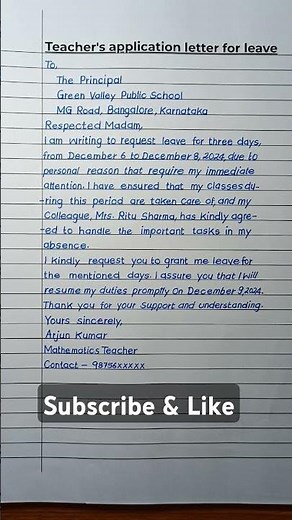 Teacher's application letter for leave
To,
The Principal
Green Valley Public School
MG Road, Bangalore, Karnataka
Respected Madam,
I am writing to request leave for three days,
from December 6 to December 8, 2024, due to
personal reason that require my immediate
attention. I have ensured that my classes du-
-ring this period are taken care of, and my
Colleague, Mrs. Ritu Sharma, has kindly agre-
-ed to handle the important tasks in my
absence.
I kindly request you to grant me leave for
the mentioned days. I assure you that I will
resume my duties promptly on December 9, 2024.
Thank you for your support and understanding.
Yours sincerely,
Arjun Kumar
Mathematics Teacher
Contact - 98756xxxxx
Subscribe & Like